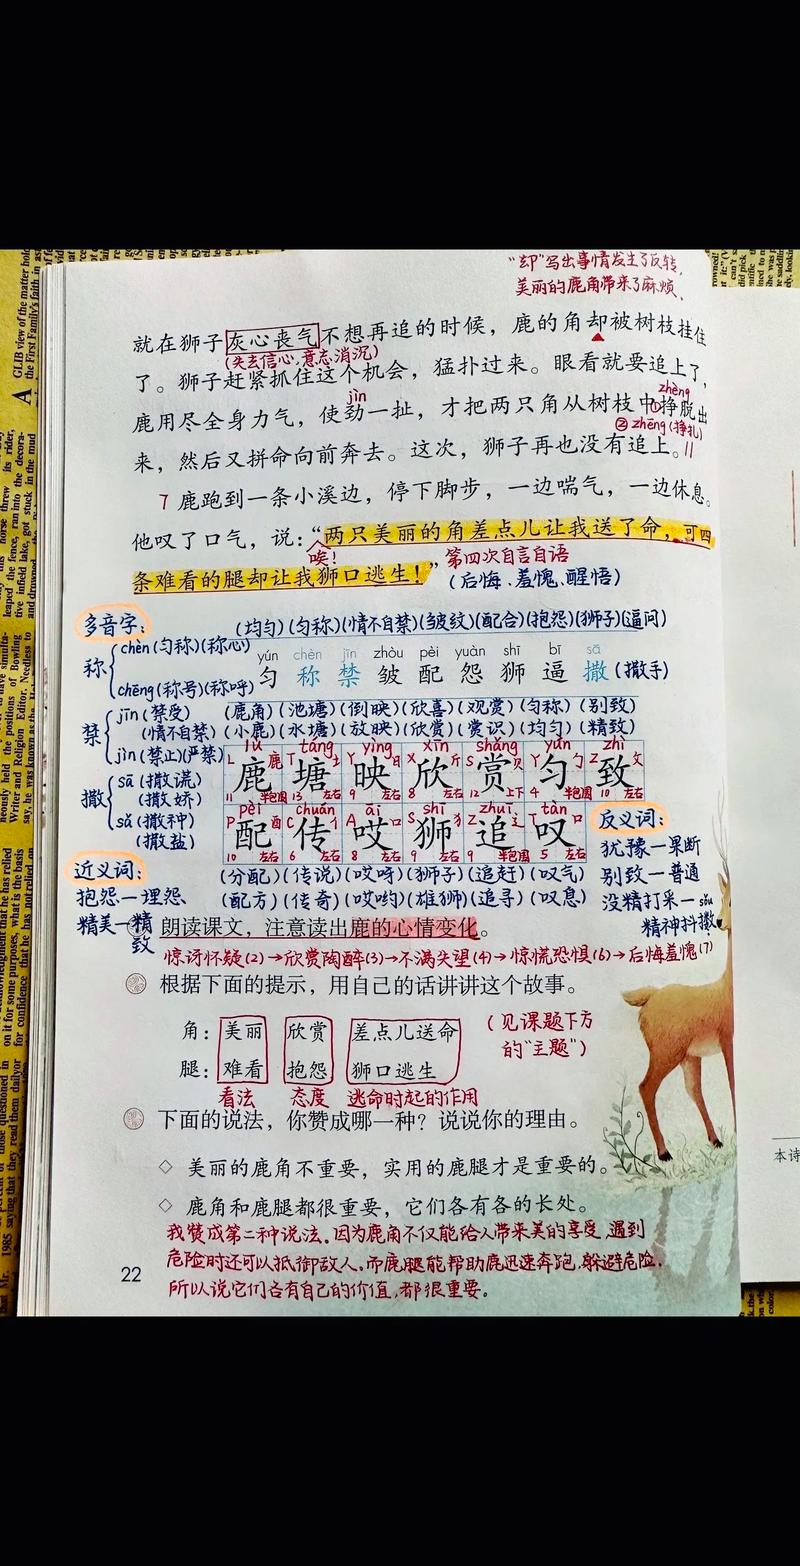 "却"写出事情发生了反转,
美丽的鹿角带来了麻烦、
就在狮子灰心丧气不想再追的时候，鹿的角却被树枝挂住
(失去信心,意志消沉)
了。狮子赶紧抓住这个机会，猛扑过来。眼看就要追上了，
jìn
zhèng
鹿用尽全身力气，使劲一扯，才把两只角从树枝中①挣脱出
②zhēng(挣扎)
来，然后又拼命向前奔去。这次，狮子再也没有追上。//
7 鹿跑到一条小溪边，停下脚步，一边喘气，一边休息。
他叹了口气，说：“两只美丽的角差点儿让我送了命，可四
唉!
第四次自言自语
条难看的腿却让我狮口逃生！”
(后悔、羞愧、醒悟)
多音字:
(均匀)(匀称)(情不自禁)(皱皱纹)(配合)(抱怨)(狮子)(逼问)
称
chèn(匀称)(称心)
chēng(称号)(称呼)
yún chèn jīn zhòu pèi yuàn shī bī sā
匀 称 禁 皱 配 怨 狮 逼 撒 (撒手)
禁
jīn(禁受)
(情不自禁)
jìn(禁止)(严禁)
(鹿角)(池塘)(倒映)(欣喜)(观赏)(匀称)(别致)
(小鹿)(水塘)(放映)(欣赏)(赏识)(均匀)(精致)
撒
sā(撒谎)
(撒娇)
sǎ(撒种)
(撒盐)
lù táng yìng xīn shǎng yún zhì
鹿 塘 映 欣 赏 匀 致
11 半包围 13 左右 9 左右 8 左右 12 上下 4 半包围 10 左右
pèi chuán āi shī zhuī tàn
配 传 哎 狮 追 叹
10 左右 6 左右 8 左右 9 左右 9 半包围 5 左右
(分配)(传说)(哎呀)(狮子)(追赶)(叹气)
(配方)(传奇)(哎哟)(雄狮)(追寻)(叹息)
反义词:
犹豫—果断
别致—普通
没精打采—
精神抖擞
sǒu
近义词:
抱怨—埋怨、
精美—精致
朗读课文，注意读出鹿的心情变化。
惊讶怀疑(2)→欣赏陶醉(3)→不满失望(4)→惊慌恐惧(6)→后悔羞愧(7)
根据下面的提示，用自己的话讲讲这个故事。
角：美丽 欣赏 差点儿送命
腿：难看 抱怨 狮口逃生
(见课题下方
的"主题")
看法 态度 逃命时起的作用
下面的说法，你赞成哪一种？说说你的理由。
◇ 美丽的鹿角不重要，实用的鹿腿才是重要的。
◇ 鹿角和鹿腿都很重要，它们各有各的长处。
我赞成第二种说法。因为鹿角不仅能给人带来美的享受,遇到
危险时还可以抵御敌人。而鹿腿能帮助鹿迅速奔跑,躲避危险,
所以说它们各有自己的价值,都很重要。
22
本诗